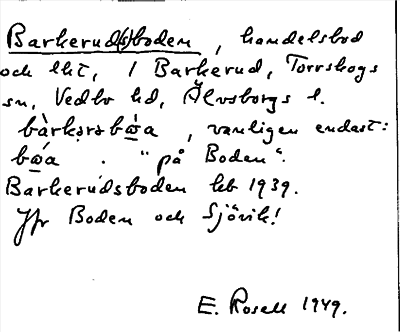 Barkerud(s)boden, handelsbod
och lht, i Barkerud, Torrskogs
sn, Vedbo hd, Älvsborgs l.
, vanligen endast:
. "på Boden".
Barkerudsboden kb 1939.
Jfr Boden och Sjövik!
E. Rosell 1949.